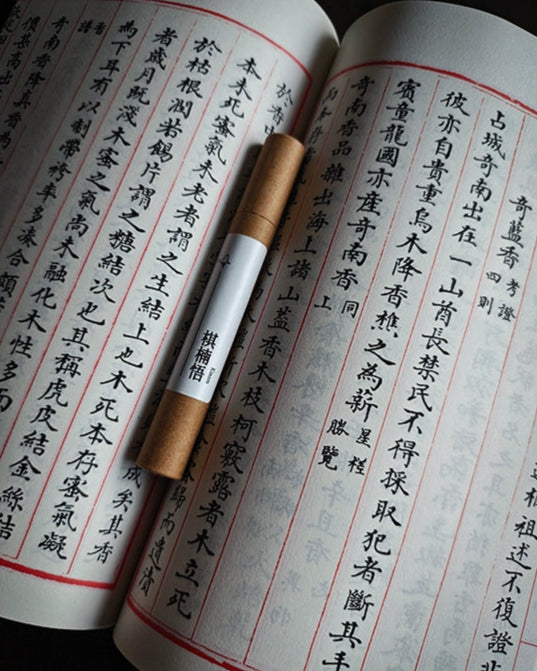 祖述不復證
奇藍香 考證 四則
占城奇南出在一山酋長禁民不得採取犯者斷其手
彼亦自貴重烏木降香樵之為薪 星槎勝覽
賓童龍國亦產奇南香 同上
奇南香品雜出海上諸山蓋香木枝柯竅露者木立死
而本存
而遺漬
於香
成矣其香
本未死蜜氣未老者謂之生結上也木死本存蜜氣凝
於枯根潤若餳片謂之糖結次也其稱虎皮結金絲結
者歲月既淺木蜜之氣尚未融化木性多而
為下耳有以制帶胯率多湊合頗
棋楠悟